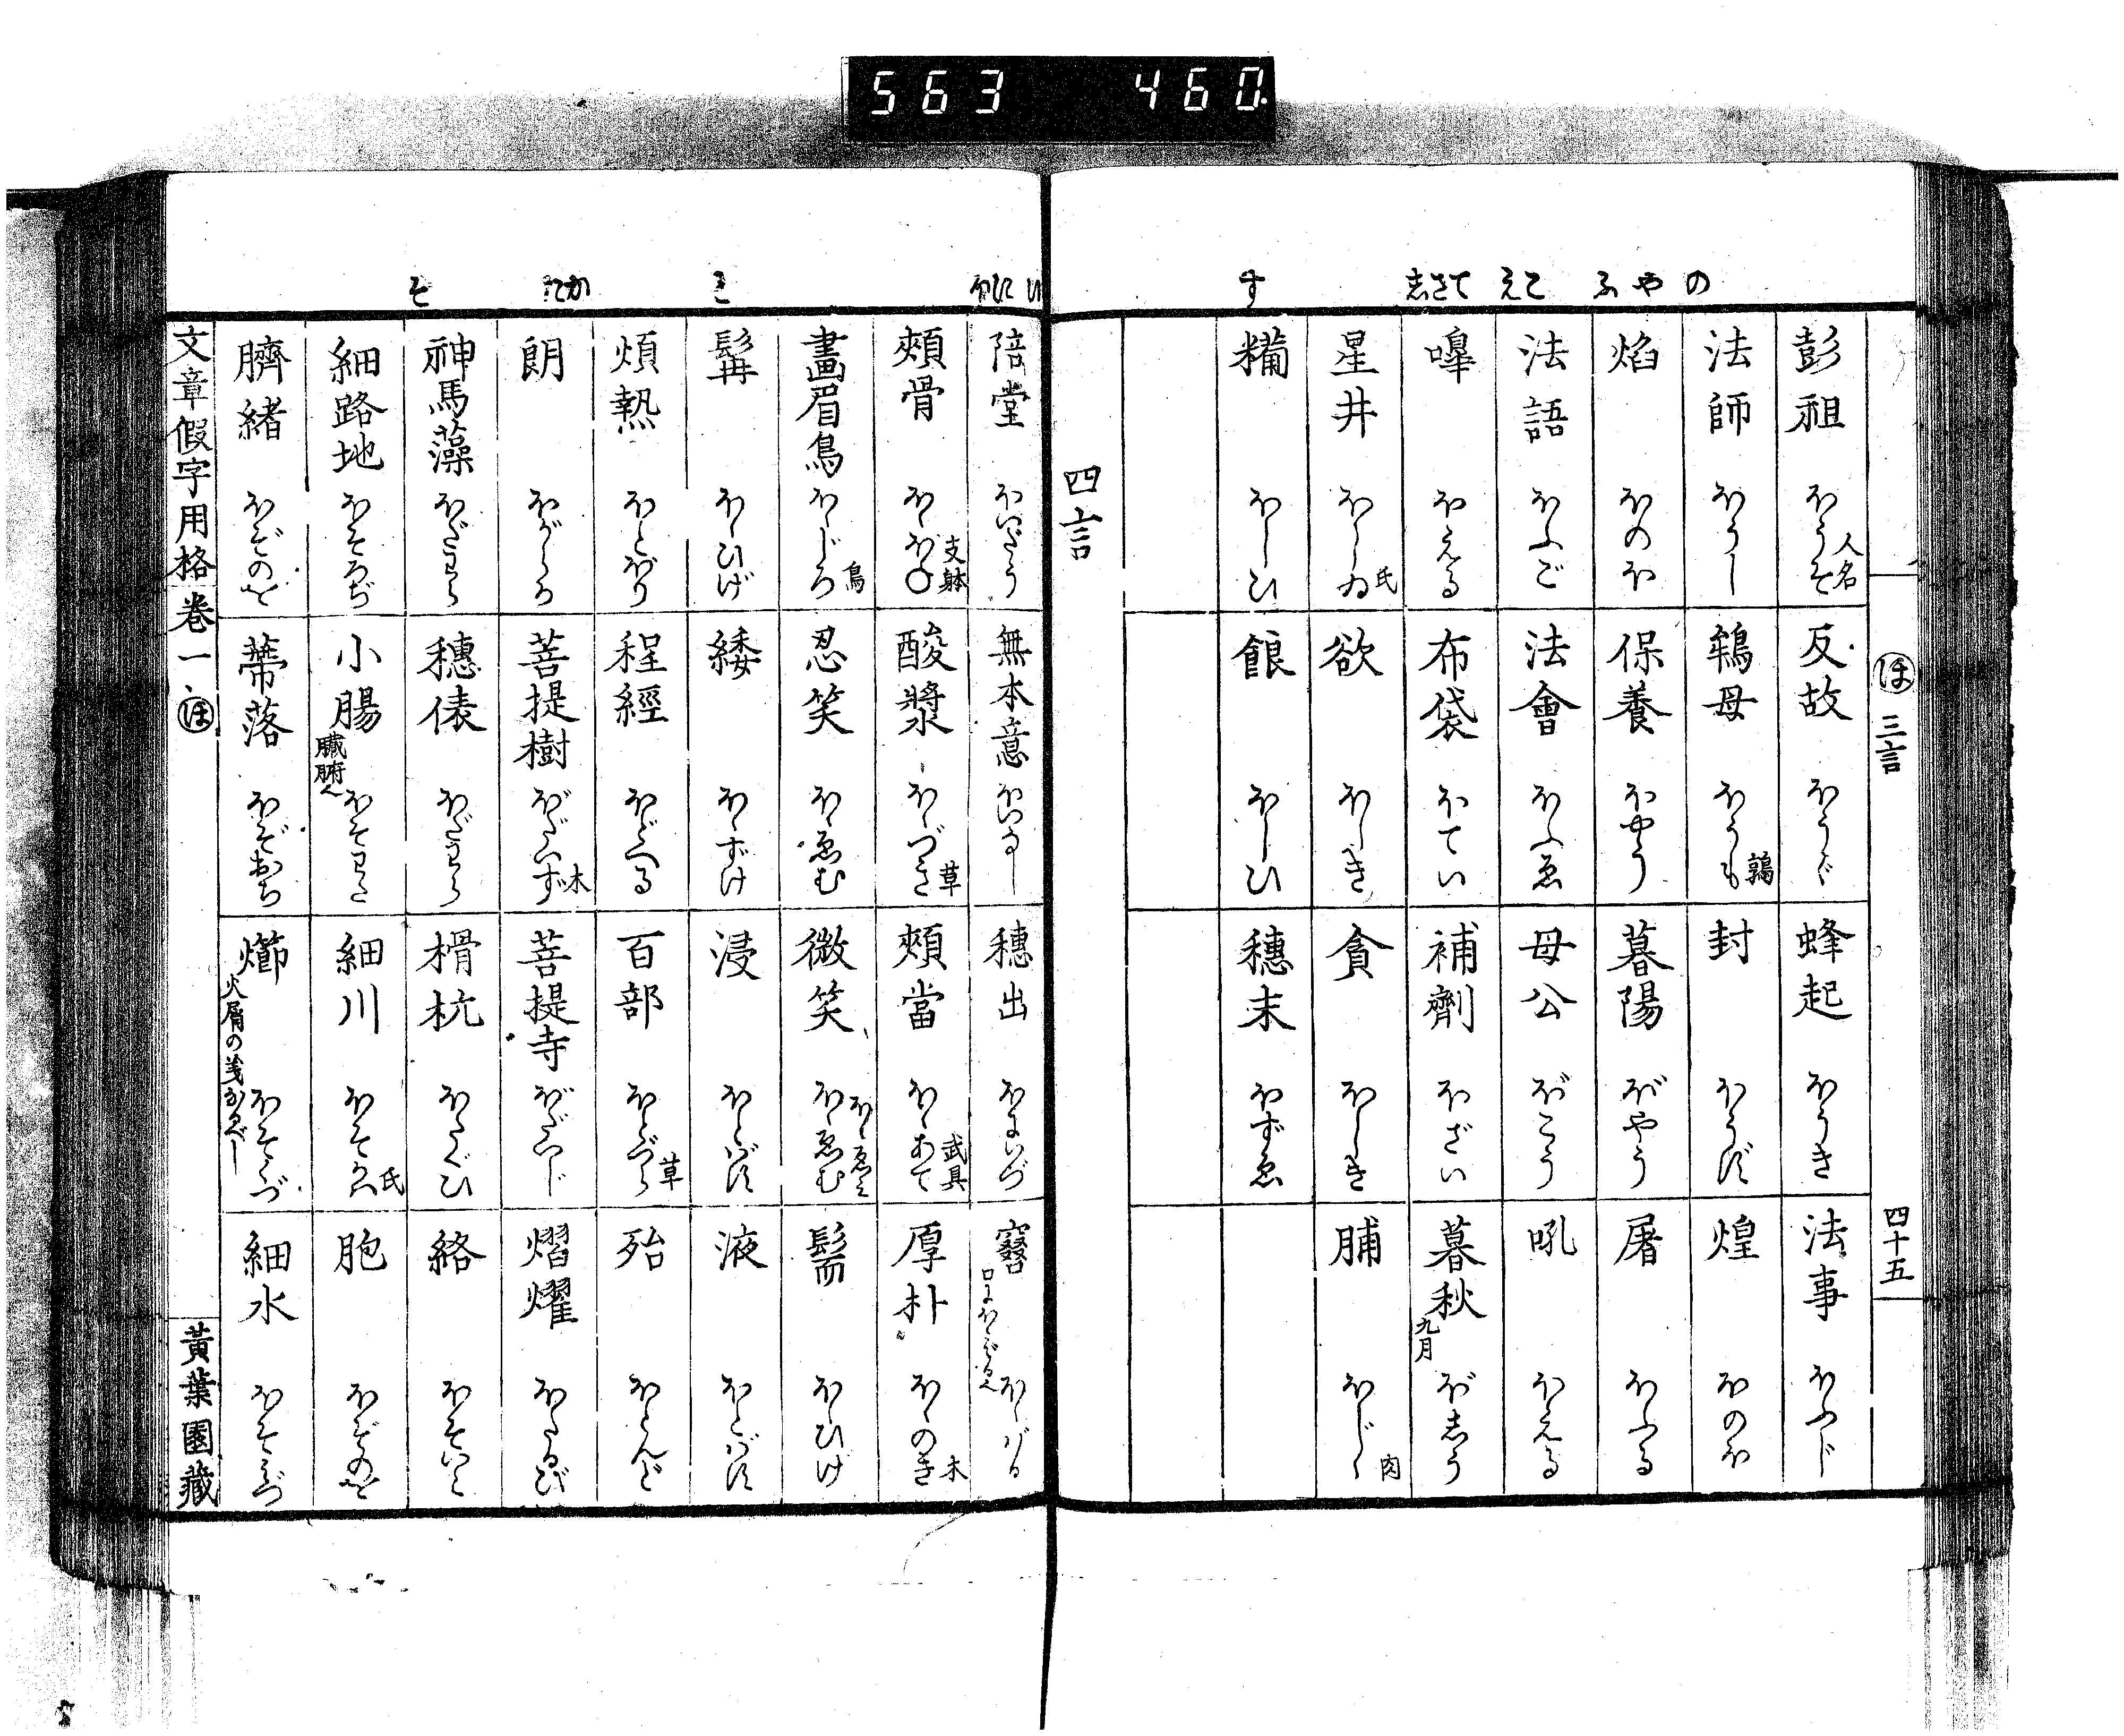 563 460
のやふ こえ てさし す
ほ 三言 四十五
彭祖 ほうそ 人名
反故 ほうぐ
蜂起 ほうき
法事 ほふじ
法師 ほうし
鴾母 ほうも 鶉
封 ほうず
煌 ほのほ
焰 ほのほ
保養 ほやう
暮陽 ぼやう
屠 ほふる
法語 ほふご
法會 ほふゑ
母公 ぼこう
吼 ほえる
嘷 ほえる
布袋 ほてい
補劑 ほざい
暮秋 九月 ぼしう
星井 ほしゐ 氏
欲 ほしき
貪 ほしき
脯 ほじし 肉
糒 ほしひ
餦 ほしひ
穗末 ほずゑ
四言
陪堂 ほいだう
無本意 ほいなし
穗出 ほにいづ
頰骨 ほゝぼね 支躰
酸漿 ほゝづき 草
頰當 ほゝあて 武具
厚朴 ほゝのき 木
畫眉鳥 ほゝじろ 鳥
忍笑 ほゝゑむ
微笑 ほゝゑむ ほゝゑみ
髥 ほゝひげ
髯 ほゝひげ
緌 ほゝずけ
浸 ほとばす
液 ほとばす
煩熱 ほとぼり
程經 ほどへる
百部 ほとづら 草
殆 ほとんど
朗 ほがらか
菩提樹 ぼだいず 木
菩提寺 ぼだいじ
熠燿 ほたるび
神馬藻 ほだわら
穗俵 ほだわら
榾杭 ほたくひ
絡 ほそいと
細路地 ほそろぢ
小腸 臓腑 ほそわた
細川 ほそかは 氏
胞 ほぞのを
臍緖 ほぞのを
蔕落 ほぞおち
細水 ほそみづ
文章假字用格 卷一 ほ
黄葉園藏